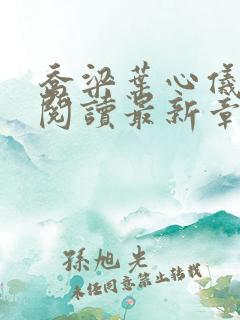 乔梁葉心儀
閱讀最新章
孫旭光
未経同意禁止轉載